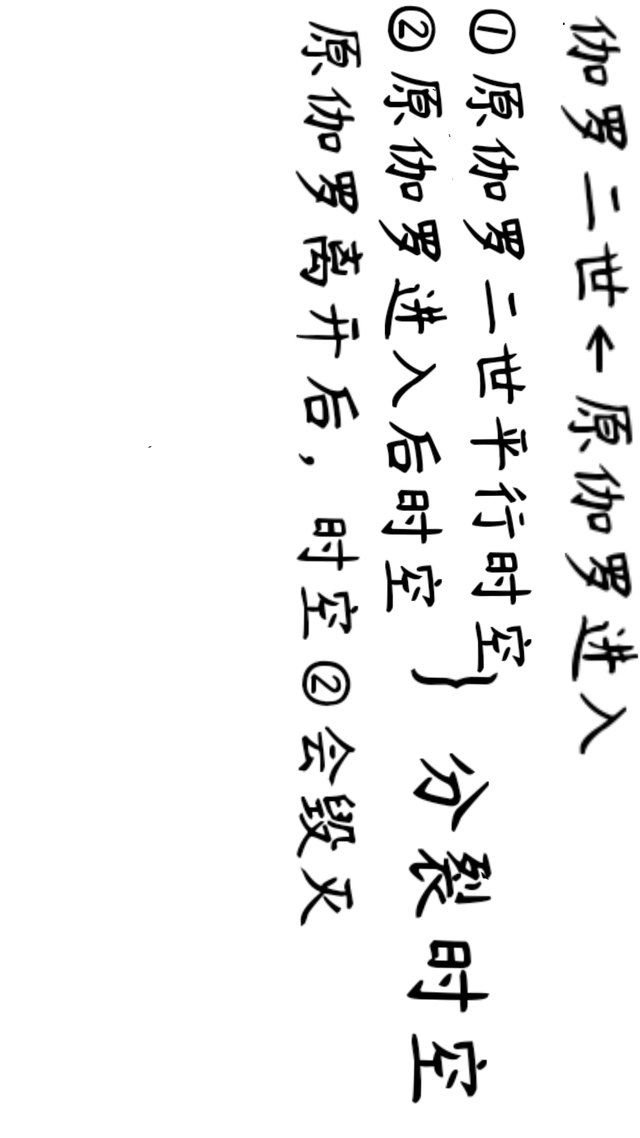 伽罗二世←原伽罗进入
①原伽罗二世平行时空
②原伽罗进入后时空
} 分裂时空
原伽罗离开后，时空②会毁灭